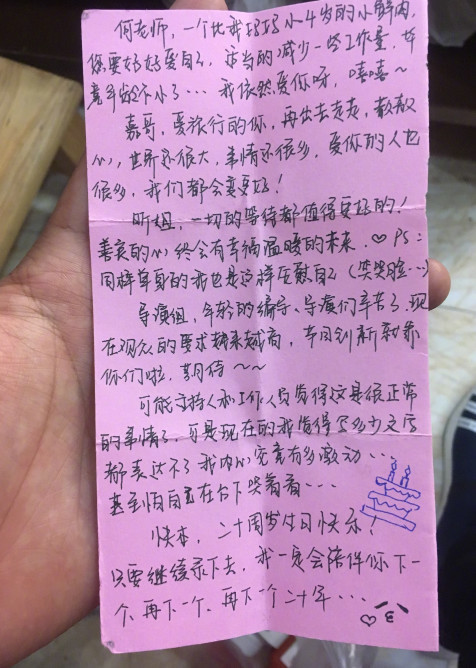 何老师，一个比我妈妈小4岁的小鲜肉，
您要好好爱自己，适当的减少一些工作量，毕
竟年龄不小了…我依然爱你呀，嘻嘻～
嘉哥，爱旅行的你，再出去走走，散散
心，世界还很大，事情还很多，爱你的人也
很多，我们都会变更好！
昕姐，一切的等待都值得更好的！
善良的心终会有幸福温暖的未来.♡PS：
同样单身的我也是这样安慰自己（笑哭脸…）
导演组，年轻的编导、导演们辛苦了，现
在观众的要求越来越高，节目创新到靠
你们啦，期待～～
可能主持人和工作人员觉得这是很正常
的事情了，可是现在的我觉得写多少文字
都表达不了我内心究竟有多激动…
甚至怕自己在台下哭着看…
快本，二十周岁生日快乐！
只要继续录下去，我一定会陪伴你下一
个、再下一个、再下一个二十年…